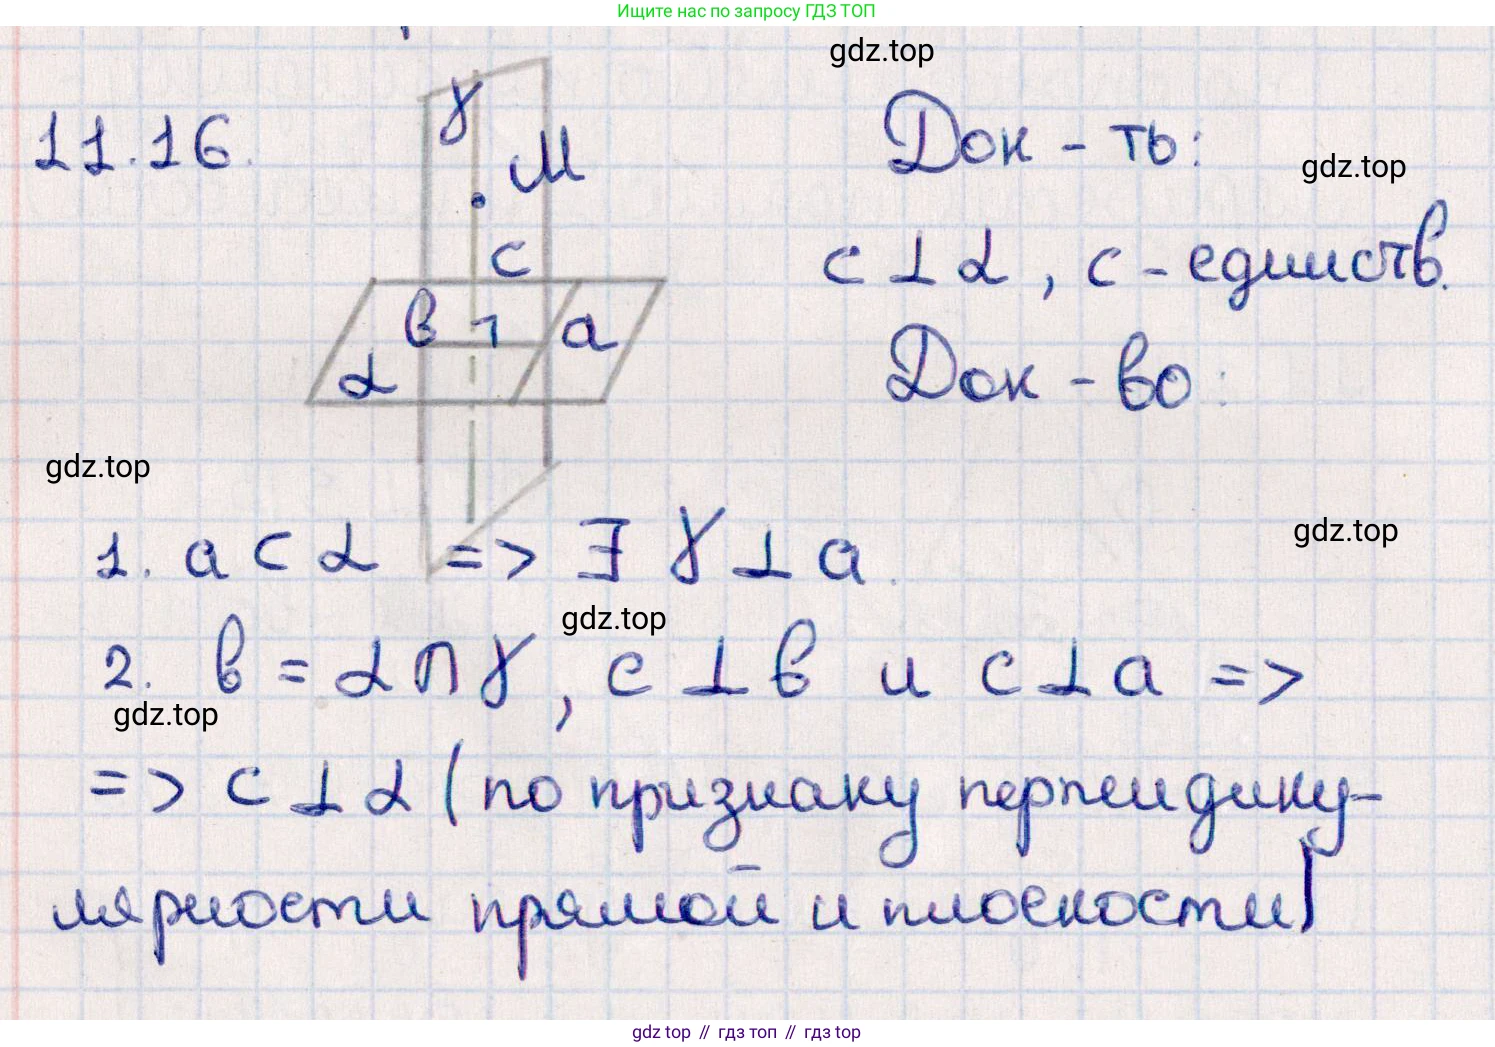 Ищите нас по запросу ГДЗ ТОП
gdz.top
11.16.
γ
M
c
в
a
α
Док-ть:
gdz.top
c ⊥ α, c - единств.
Док-во:
gdz.top
gdz.top
1. a ⊂ α => ∃ γ ⊥ a.
gdz.top
2. в = α ∩ γ, c ⊥ в и c ⊥ a =>
gdz.top
=> c ⊥ α (по признаку перпендику-
лярности прямой и плоскости)
gdz top // гдз топ // гдз top